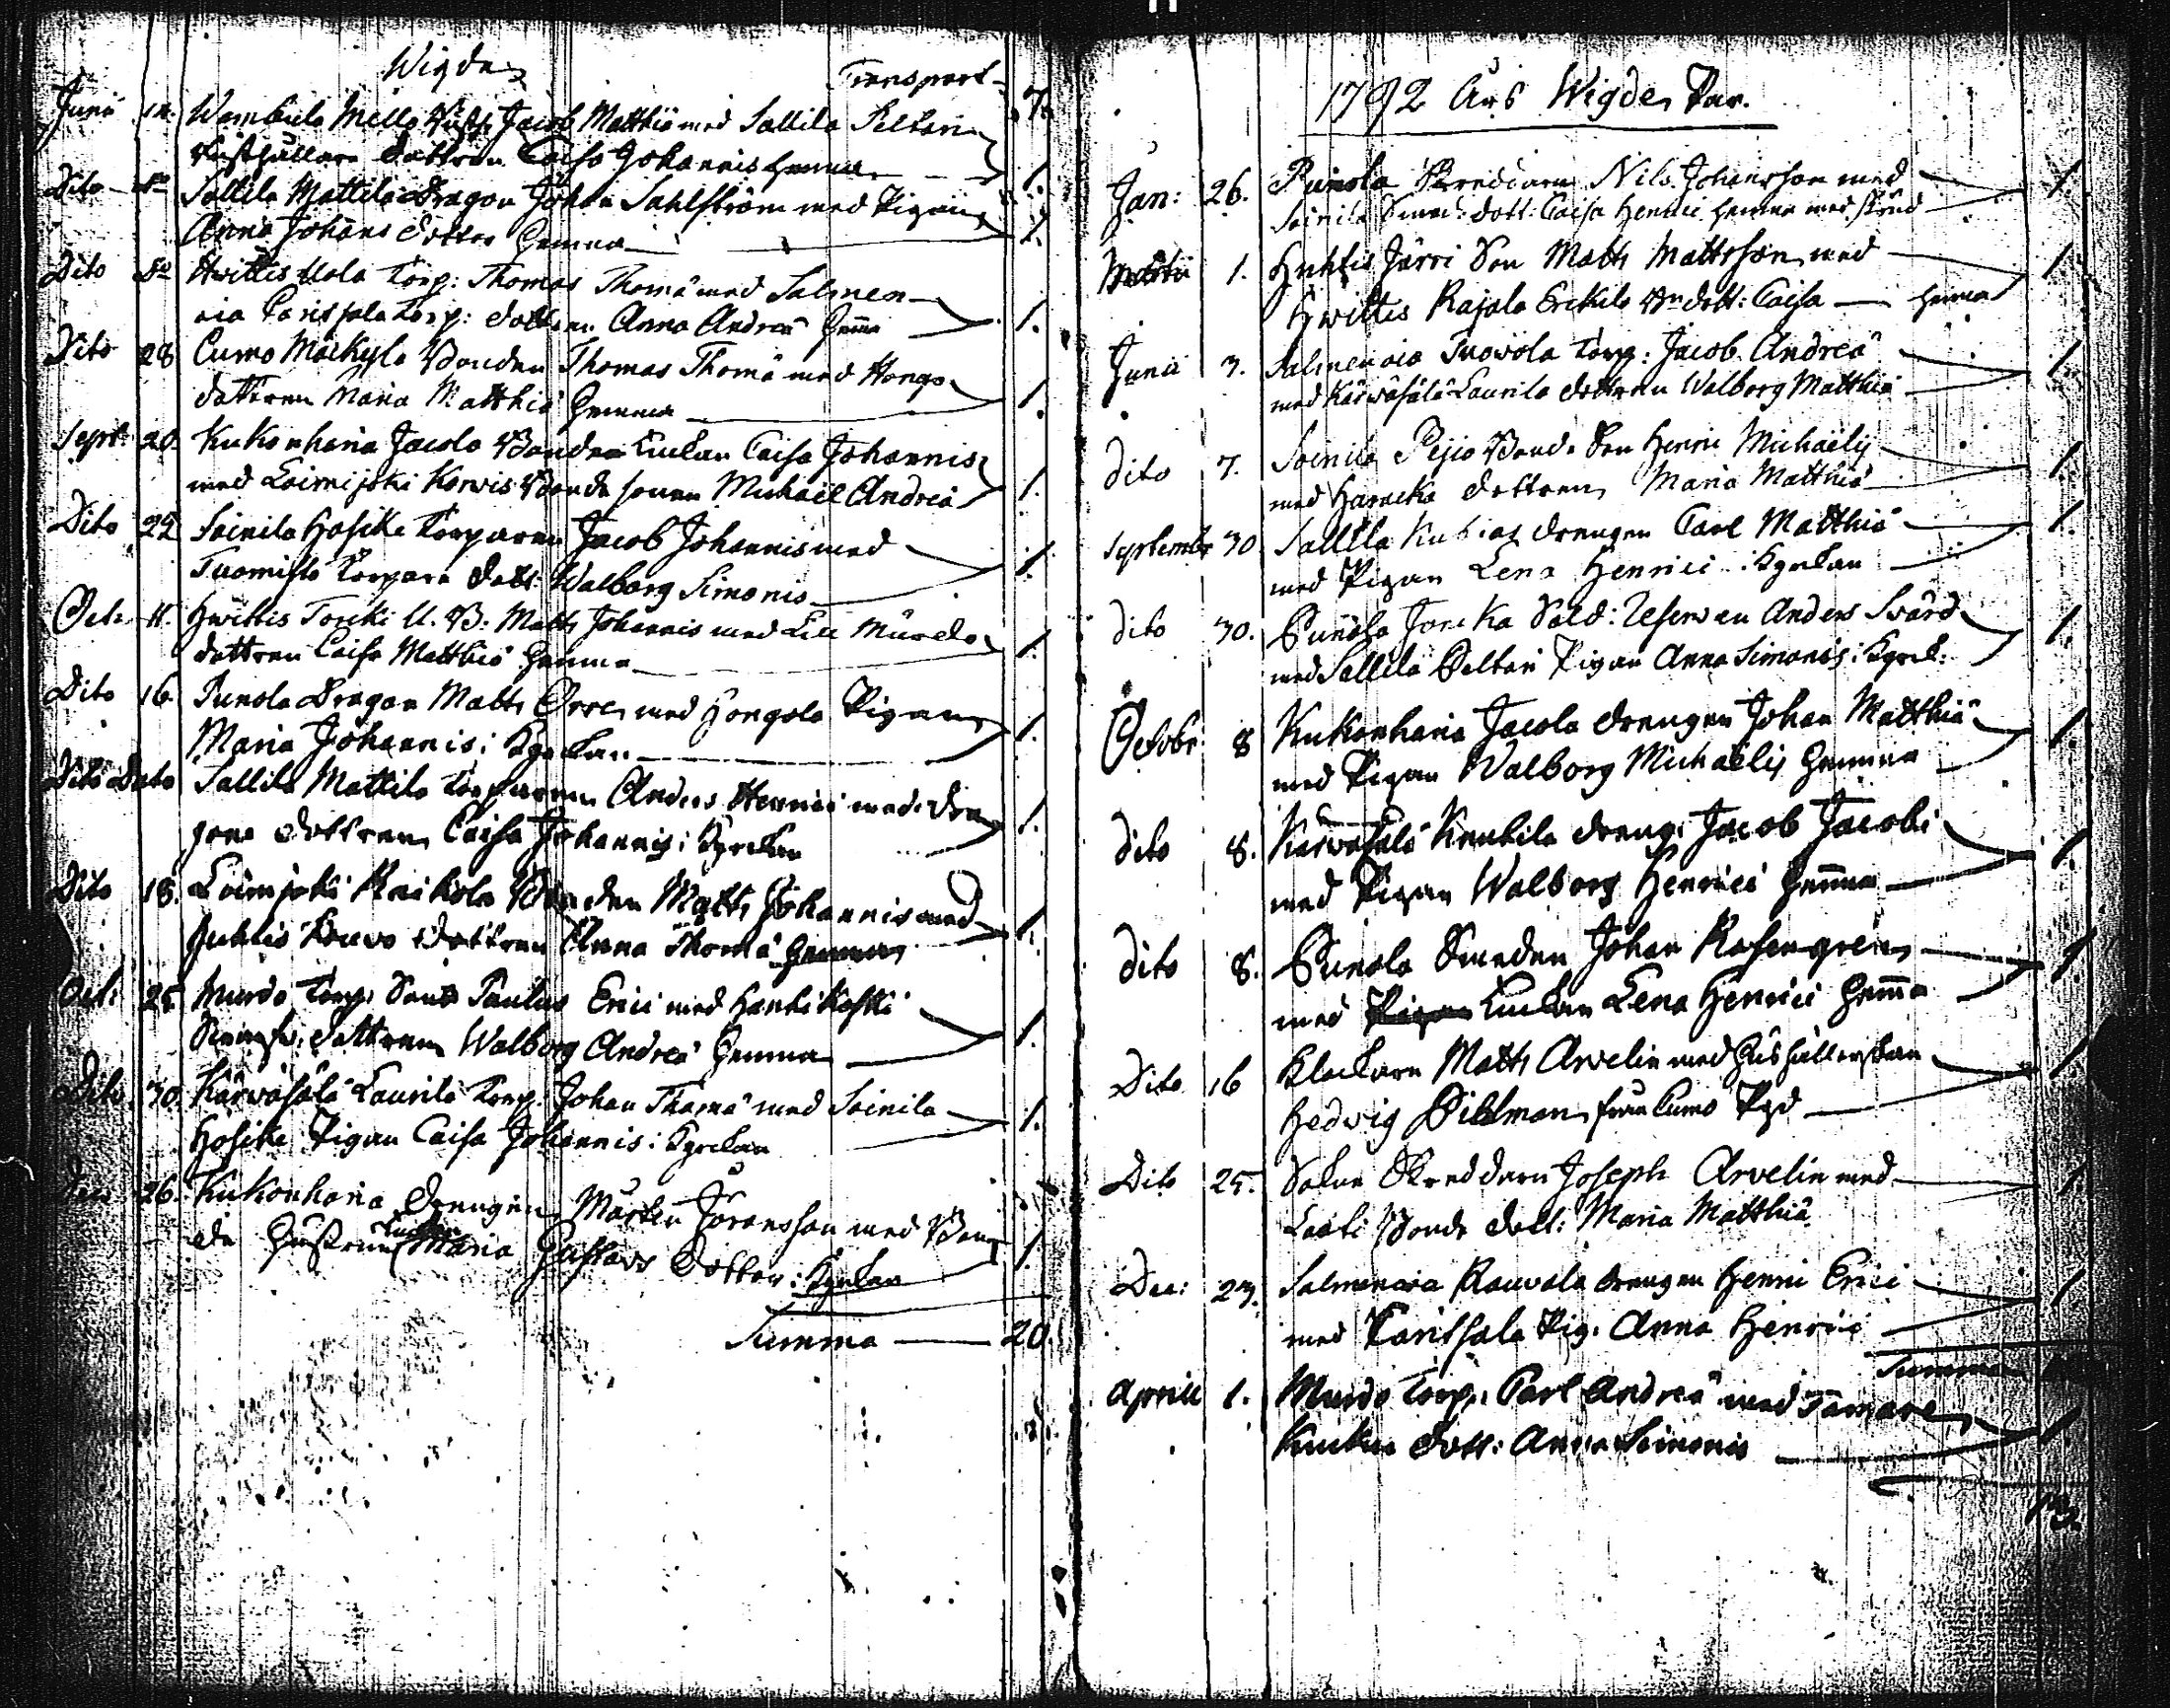 Wigde
Transport 7.
Junii 12. Wambula Mella Rusth: Jacob Matthiæ med Sallila Seltari
Rusthållare dottren Caisa Johannis hemma 1.
Dito do Sallila Mattila Dragon Johan Sahlström med Pigan
Anna Johans dotter hemma 1.
Dito do Hvittis Uola Torp: Thomas Thomæ med Salmen-
oia Parisjala Torp: dottren Anna Andreæ hemma 1.
Dito 28 Cumo Mäckylä Bonden Thomas Thomæ med Hongo
dottren Maria Matthiæ hemma 1.
Sept: 20. Kukonharia Jacola Bonde Enckan Caisa Johannis
med Loimijoki Korwis Bonde sonen Michaël Andreæ 1.
Dito 29 Soinila Hosike Torparen Jacob Johannis med
Tuomisto Torpare dott: Walborg Simonis 1.
Oct: 11. Hwittis Torcki U. B: Matts Johannis med Murdo
dottren Caisa Matthiæ hemma 1.
Dito 16. Punola Dragon Matts Orre med Hongola Pigan
Maria Johannis i Kyrckan 1.
Dito Dato Sallila Mattila Torparen Anders Henrici med
dottren Caisa Johannis i Kyrckan 1.
Dito 18. Loimjoki Raikola Bonden Matts Johannis med
Huhtis Kouvo dottren Anna Thomæ hemma 1.
Oct: 25. Murdo Torp: Son Paulus Erici med Hanhikoski
dottren Walborg Andreæ hemma 1.
Dito 30. Kärwäsälä Laurila Torp: Johan Thomæ med Soinila
Hosike Pigan Caisa Johannis i Kyrckan 1.
Dec: 26. Kukonharia drengen Mårten Jöransson med Bon-
de Hustrun Enckan Maria Gustavs dotter i Kyrckan 1.
Summa 20.
1792 Års Wigde Par.
Jan: 26. Punola Skreddaren Nils Johansson med
Soinila dott: Caisa Henrici hemma med skrud 1.
Martii 1. Huhtis Järri Son Matts Mattsson med
Hwittis Rajala Erkila dott: Caisa hemma 1.
Junii 3. Salmenoia Tuovola Torp: Jacob Andreæ
med Kärwäsälä Laurila dottren Walborg Matthiæ 1.
dito 7. Soinila Pejio Bonde Son Henric Michaëlis
med Haracka dottren Maria Matthiæ 1.
Septembr 30 Sallila drengen Carl Matthiæ
med Pigan Lena Henrici i Kyrckan 1.
dito 30. Punola Jorcka Sold: Anders Svärd
med Sallila Peltari Pigan Anna Simonis i Kyrck: 1.
Octobr 8 Kukonharia Jacola drengen Johan Matthiæ
med Pigan Walborg Michaëlis hemma 1.
dito 8. Kärwäsälä Knutila dreng: Jacob Jacobi
med Pigan Walborg Henrici hemma 1.
dito 8. Punola Smeden Johan Rosengren
med Enckan Lena Henrici hemma 1.
Dito 16 Klockaren Matts Arvelin med Hushållerskan
Hedwig Dillman från Cumo 1
Dito 25. Sokne Skreddaren Joseph Arvelin med
Laoti Bonde dott: Maria Matthiæ 1
Dec: 23. Salmenoia Rauvola drengen Henric Erici
med Parisjala Pig: Anna Henrici 1
Summa
Aprill 1. Murdo Torp: Carl Andreæ med Tamare
Knuhu dott: Anna Simonis 1
13.